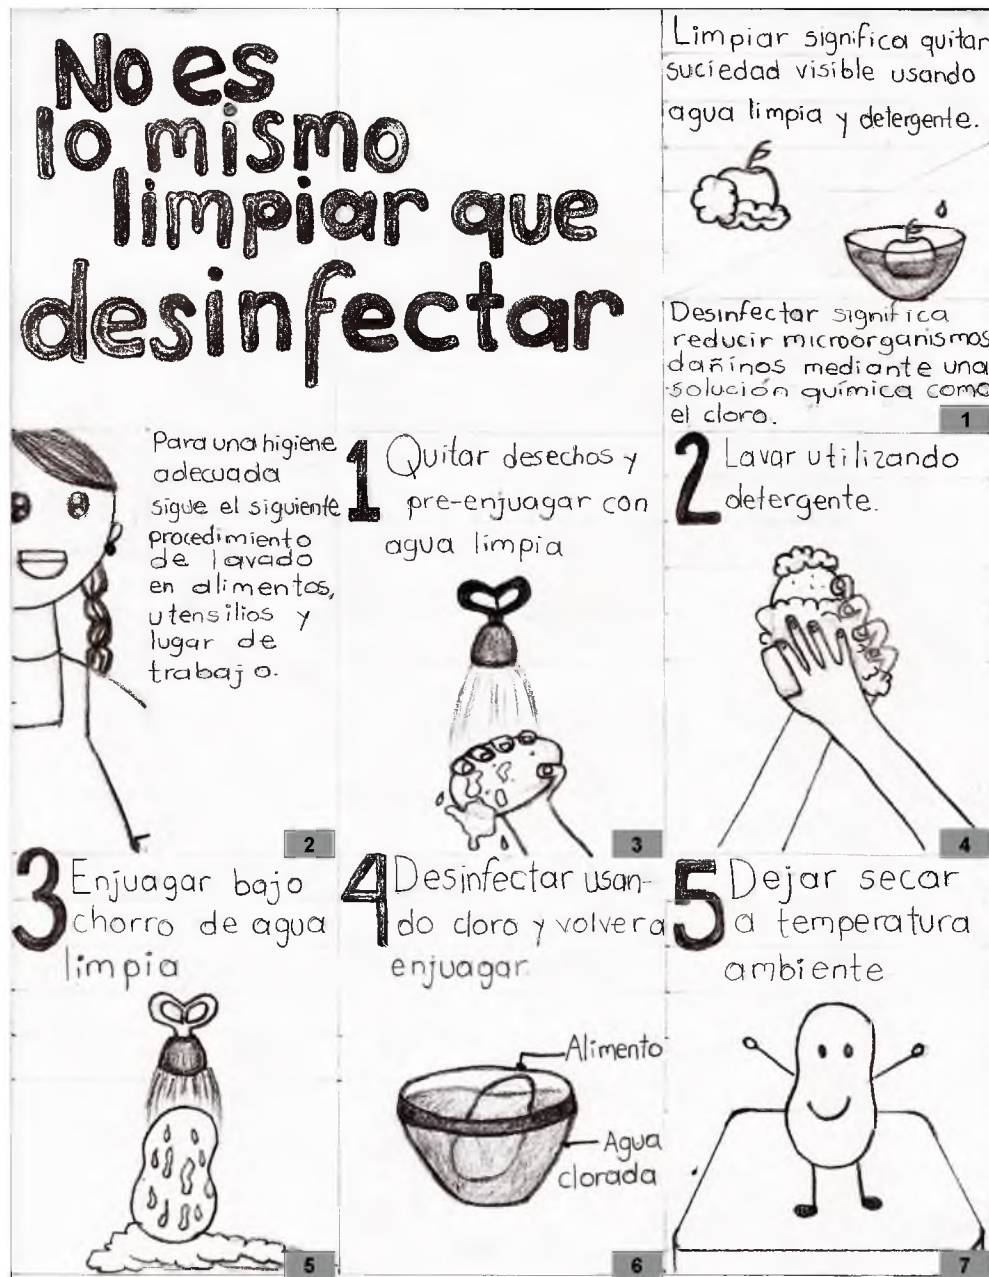 No es
lo mismo
limpiar que
desinfectar
Limpiar significa quitar
suciedad visible usando
agua limpia y detergente.
Desinfectar significa
reducir microorganismos
dañinos mediante una
solución química como
el cloro.
1
Para una higiene
adecuada
sigue el siguiente
procedimiento
de lavado
en alimentos,
utensilios y
lugar de
trabajo.
2
1 Quitar desechos y
pre-enjuagar con
agua limpia
3
2 Lavar utilizando
detergente.
4
3 Enjuagar bajo
chorro de agua
limpia
5
4 Desinfectar usan-
do cloro y volver a
enjuagar
Alimento
Agua
clorada
6
5 Dejar secar
a temperatura
ambiente
7